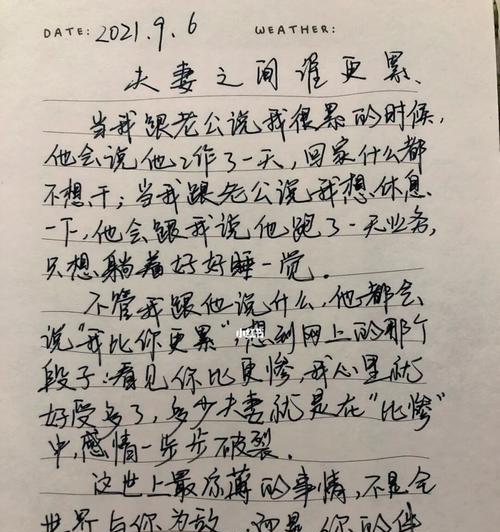 DATE: 2021.9.6 WEATHER:
夫妻之间谁更累、
当我跟老公说我很累的时候,
他会说他工作了一天,回家什么都
不想干;当我跟老公说我想休息
一下,他会跟我说他跑了一天业务,
只想躺着好好睡一觉。
不管我跟他说什么,他都会
说“我比你更累”,想到网上的那个
段子:看见你比更惨,我心里就
好受多了,多少夫妻就是在“比惨”
中,感情一步步破裂。
这世上最凉薄的事情,不是全
世界与你为敌,而是你的伴
小红书